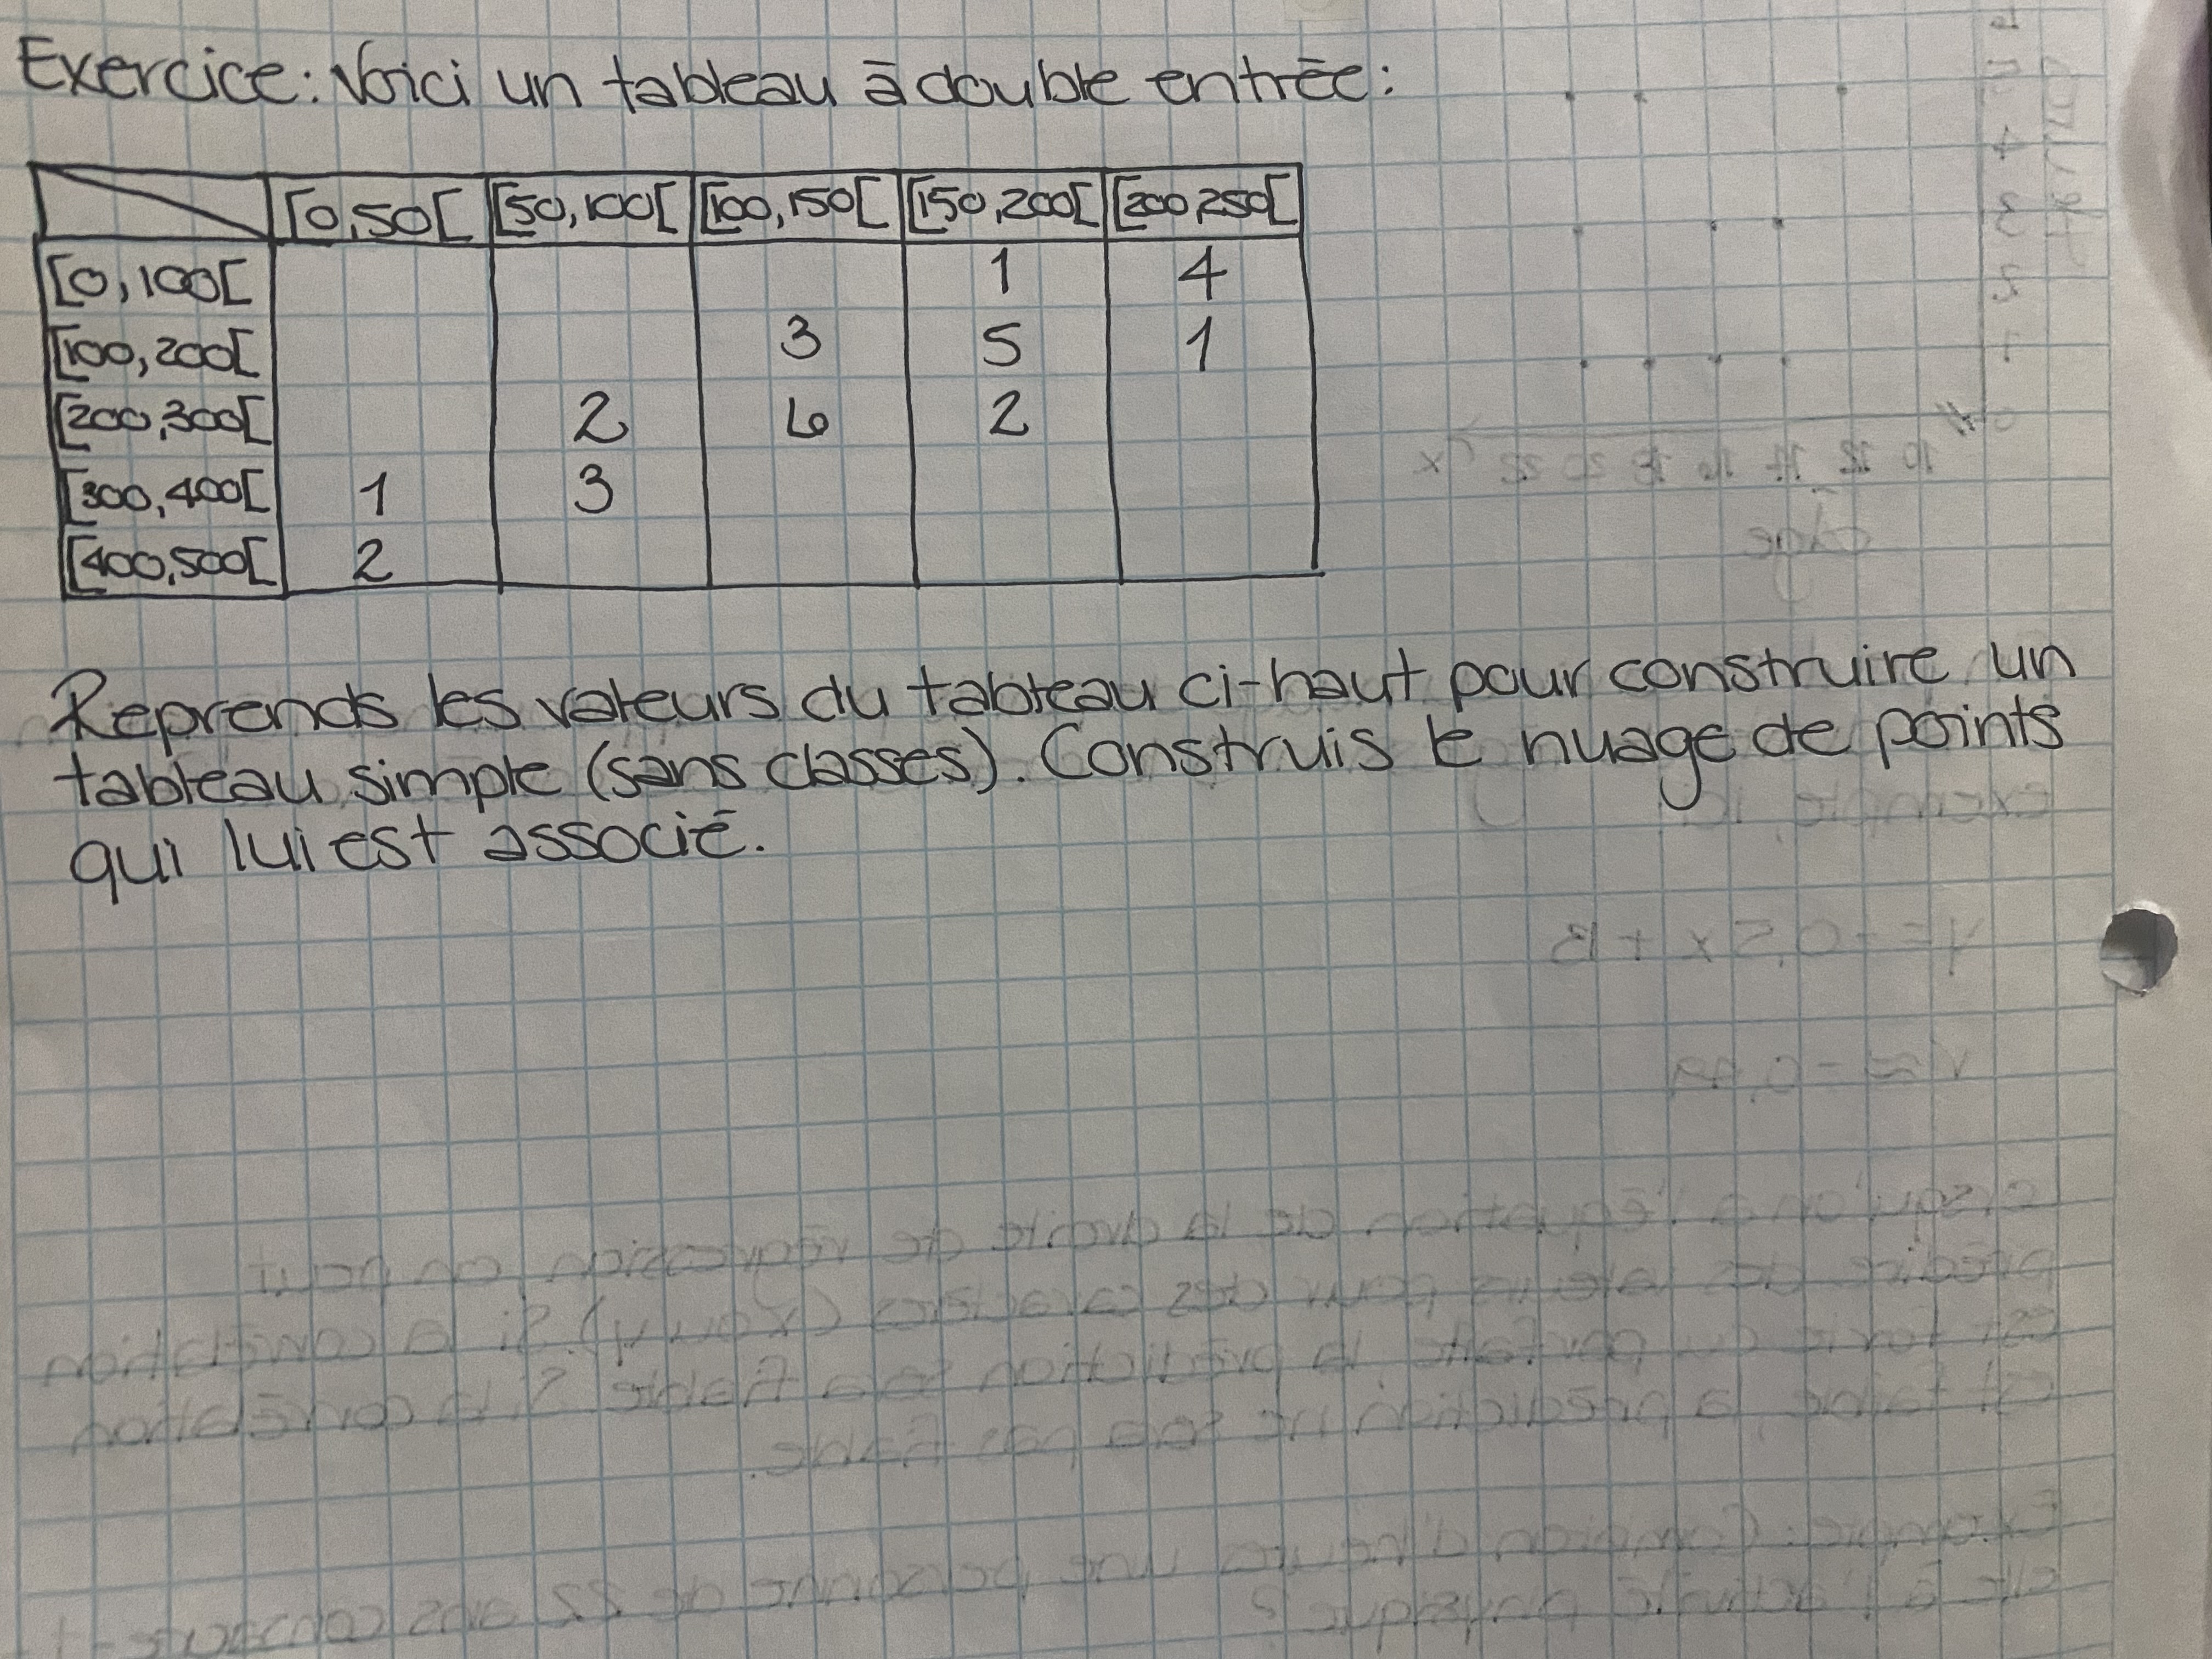 Exercice: Voici un tableau à double entrée:
[0,50[ [50,100[ [100,150[ [150,200[ [200,250[
[0,100[ 1 4
[100,200[ 3 5 1
[200,300[ 2 6 2
[300,400[ 1 3
[400,500[ 2
Reprends les valeurs du tableau ci-haut pour construire un
tableau simple (sans classes). Construis le nuage de points
qui lui est associé.